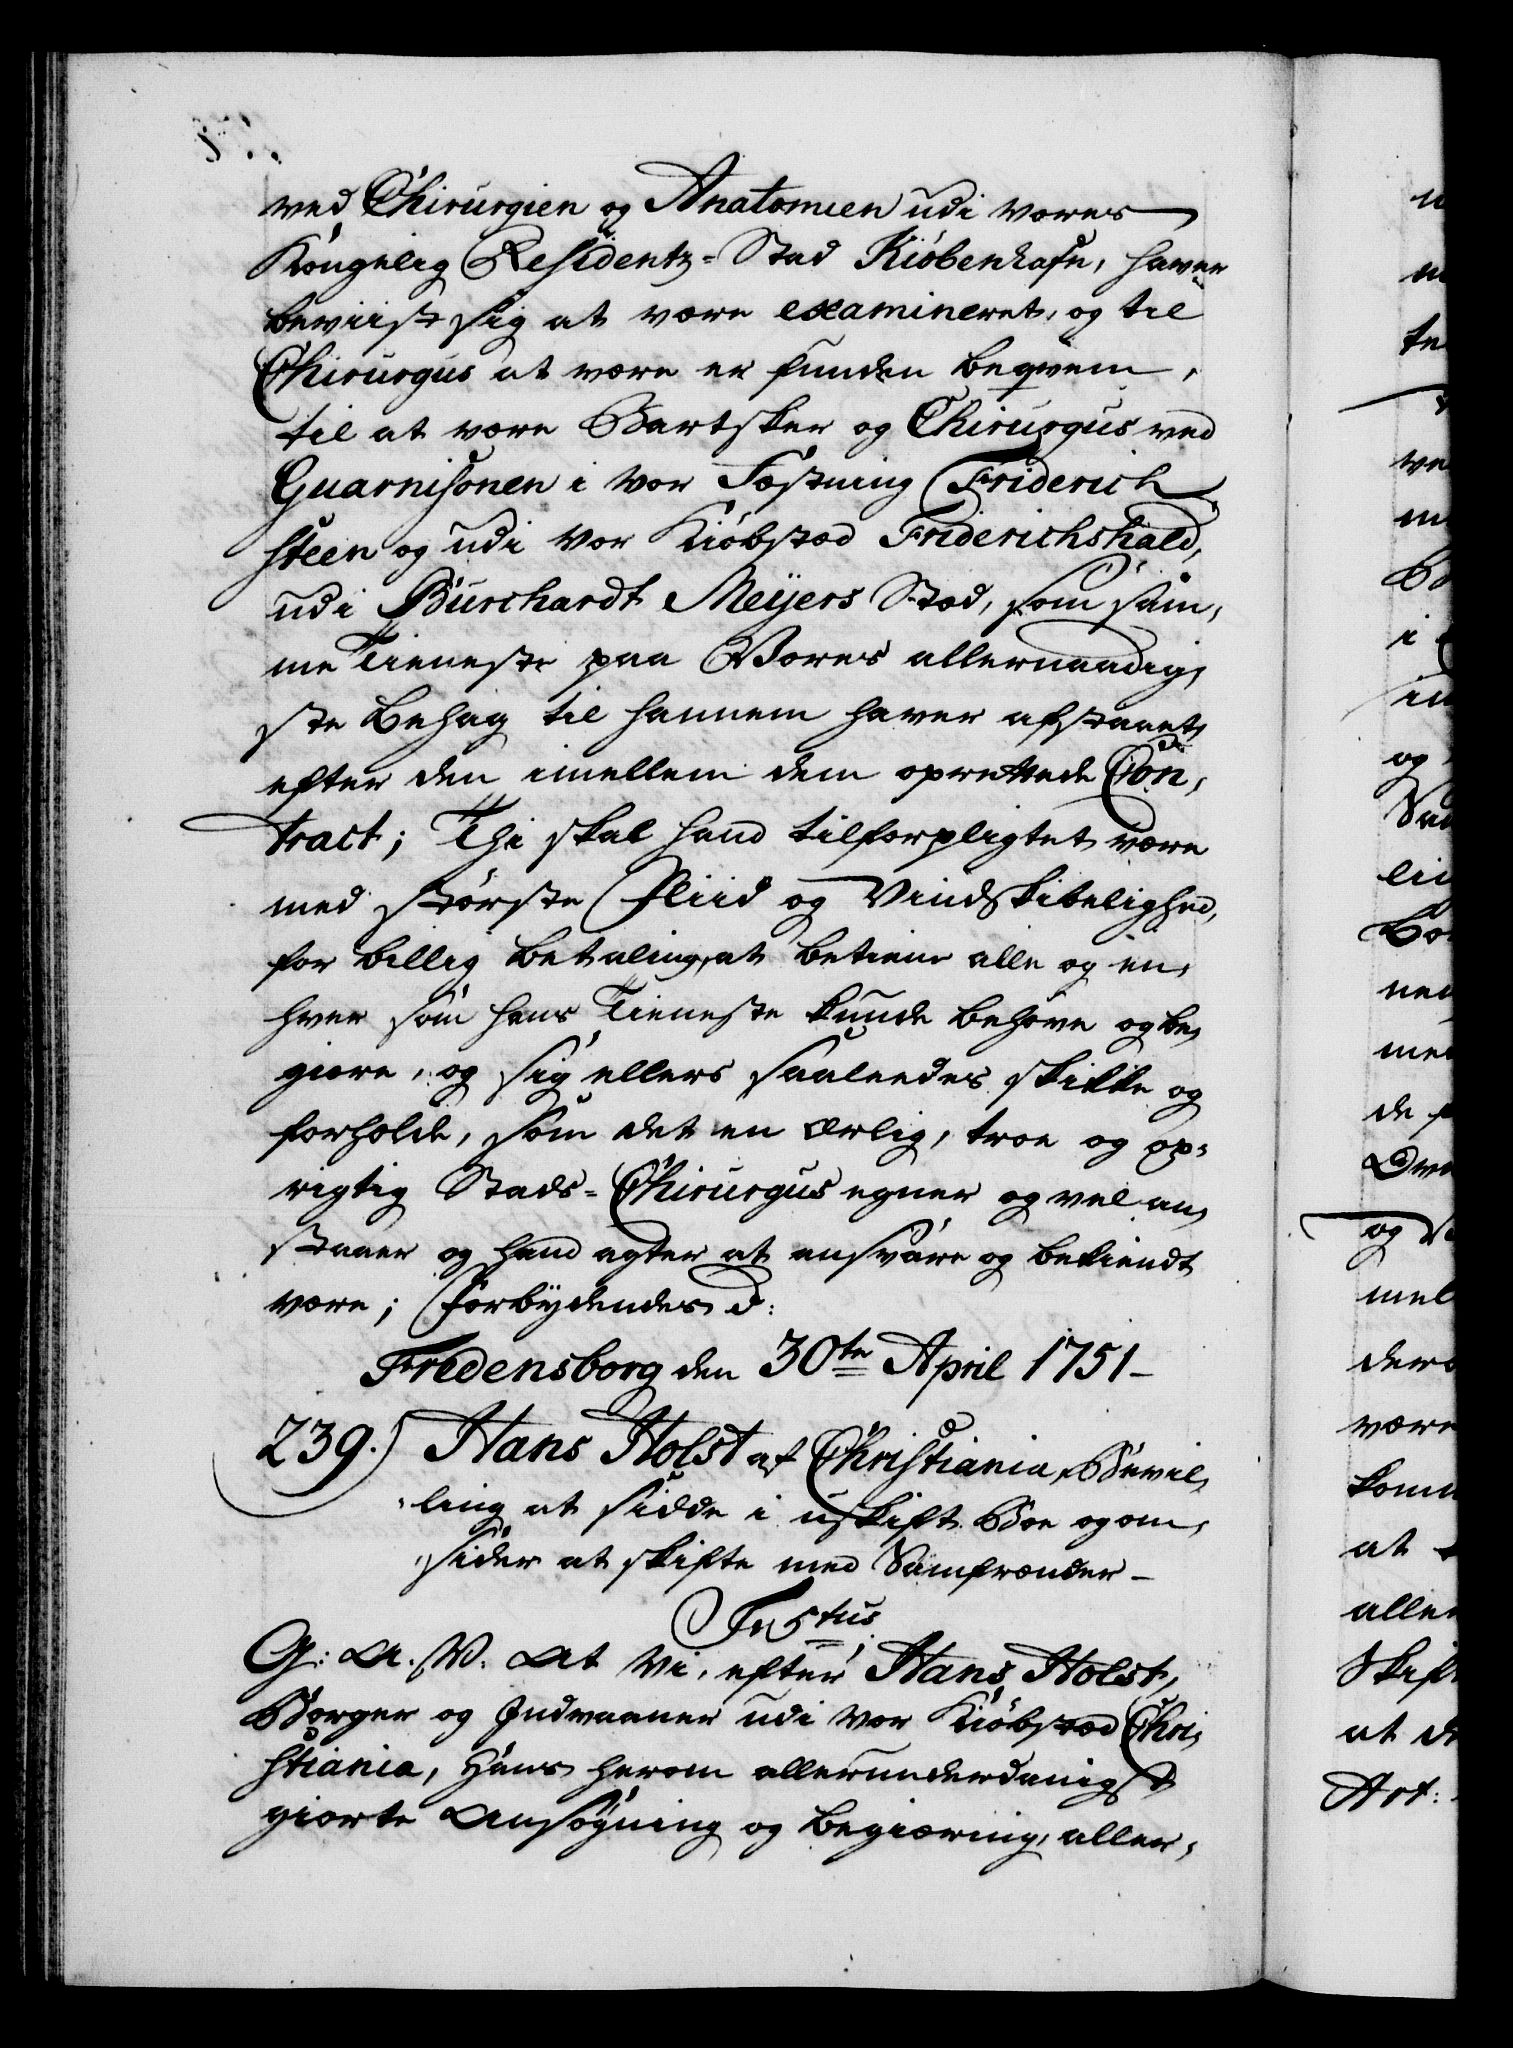 ved Chirurgien og Anatomien udi vores
Kongelig Residentz-Stad Kiøbenhafn, haver
beviist sig at være examineret, og til
Chirurgus at være er funden beqvem,
til at være Bartsker og Chirurgus ved
Guarnisonen i vor Fæstning Friderich
steen og udi vor Kiøbstæd Friderichshald,
udi Burchardt Meyers Stæd, som sam,
me Tieneste paa Vores allernaadig,
ste Behag til hannem haver afstaaet,
efter den imellem dem oprettede Con,
tract; Thi skal hand tilforpligtet være
med største Fliid og Vindskibelighed,
for billig Betaling, at betiene alle og en,
hver som hans Tieneste kunde behøve og be,
giere, og sig ellers saaleedes skikke og
forholde, som det en ærlig, troe og op-
rigtig Stads-Chirurgus egner og vel an,
staaer og hand agter at ansvare og bekiendt
være; Forbydendes d:
Fredensborg den 30te April 1751-
239.) Hans Holst af Christiania, Bevil,
ling at sidde i uskift Boe og om,
sider at skifte med Samfrænder-
Festus
G: A. V. At Vi, efter Hans Holst,
Borger og Indvaaner udi vor Kiøbstæd Chri,
stiania, Hans herom allerunderdanigst
giorte Ansøgning og Begiæring, aller,